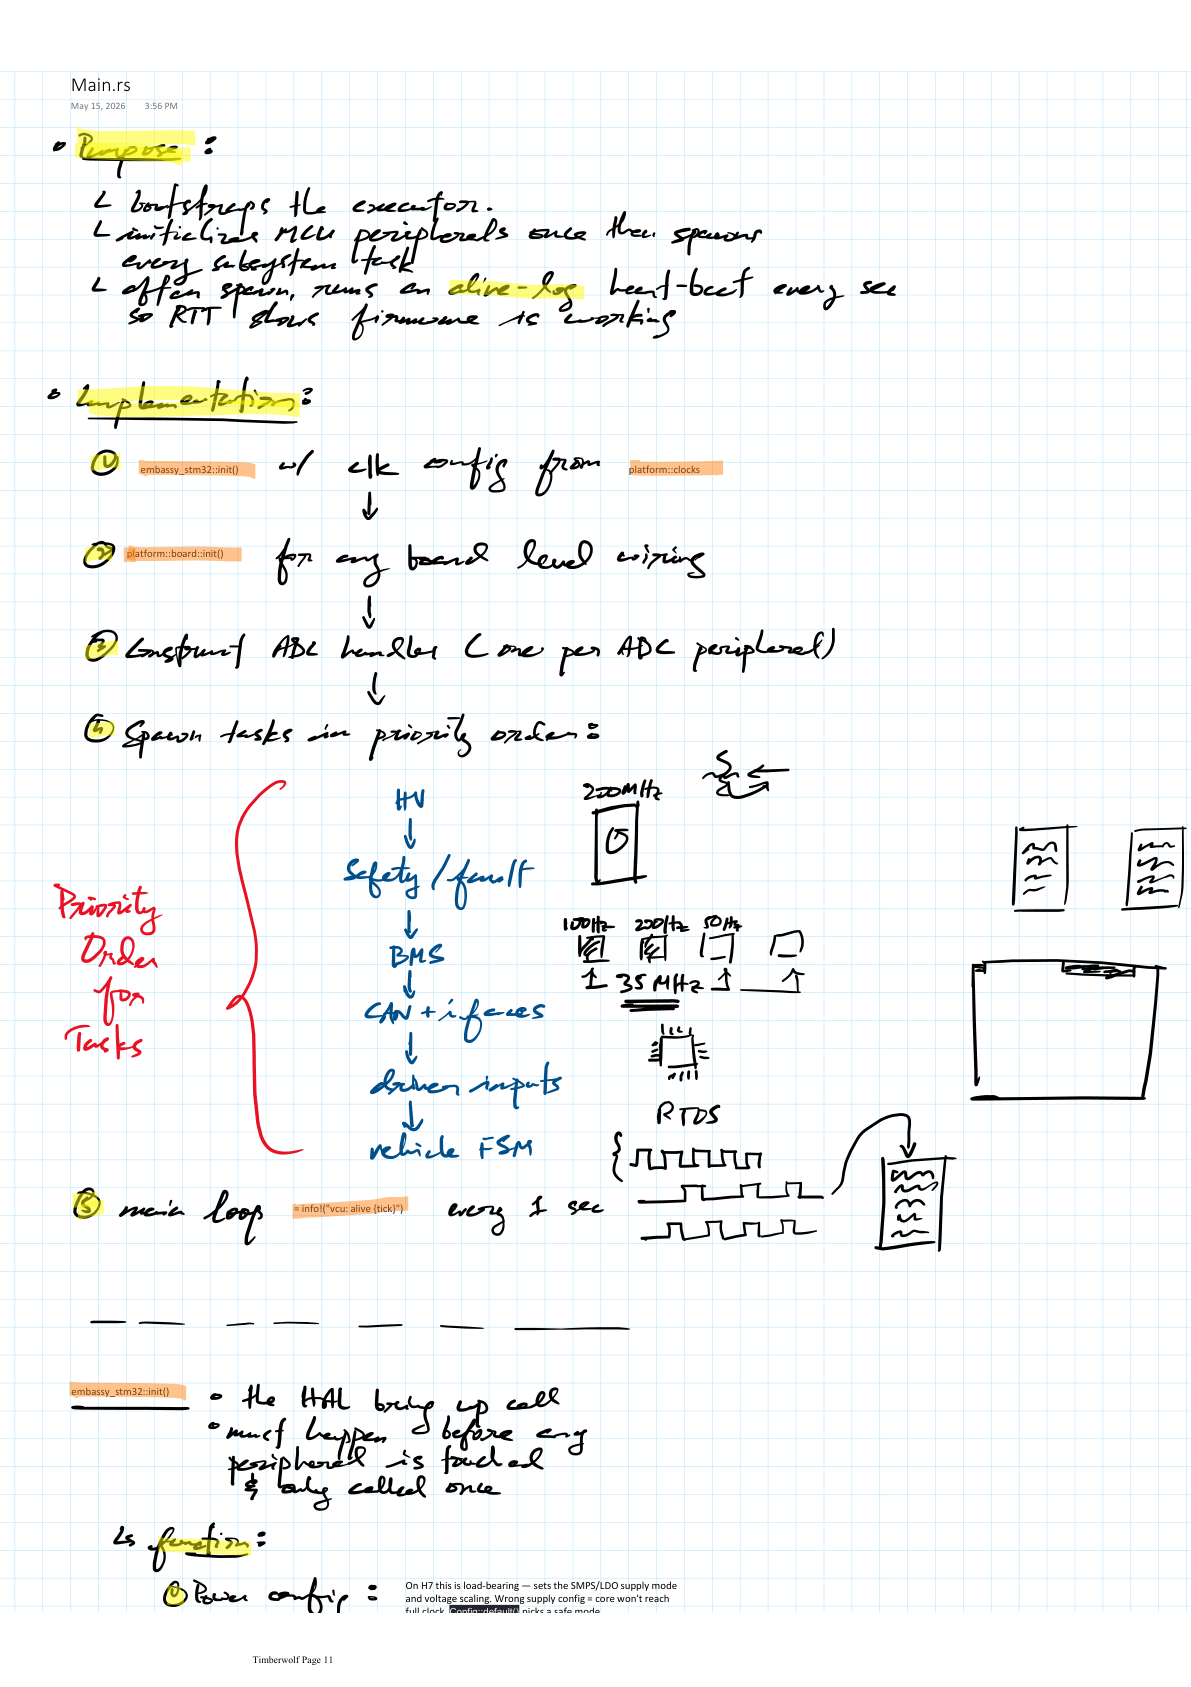 Main.rs
May 15, 2026 3:56 PM
• Purpose :
↳ bootstraps the executor.
↳ initializes MCU peripherals once then spawns
every subsystem task
↳ after spawn, runs an alive-log heart-beat every sec
so RTT shows firmware is working
• Implementation:
① embassy_stm32::init() w/ clk config from platform::clocks
② platform::board::init() for any board level wiring
③ Construct ADC handles (one per ADC peripheral)
④ Spawn tasks in priority order:
Priority
Order
for
Tasks
HV
Safety/fault
BMS
CAN + ifaces
driver inputs
vehicle FSM
200MHz
100Hz 200Hz 50Hz
35 MHz
RTOS
⑤ main loop = info!("vcu: alive (tick)") every 1 sec
embassy_stm32::init()
• the HAL bring up call
• must happen before any
peripheral is touched
& only called once
↳ function:
① Power config :
On H7 this is load-bearing — sets the SMPS/LDO supply mode
and voltage scaling. Wrong supply config = core won't reach
full clock. Config::default() picks a safe mode
Timberwolf Page 11